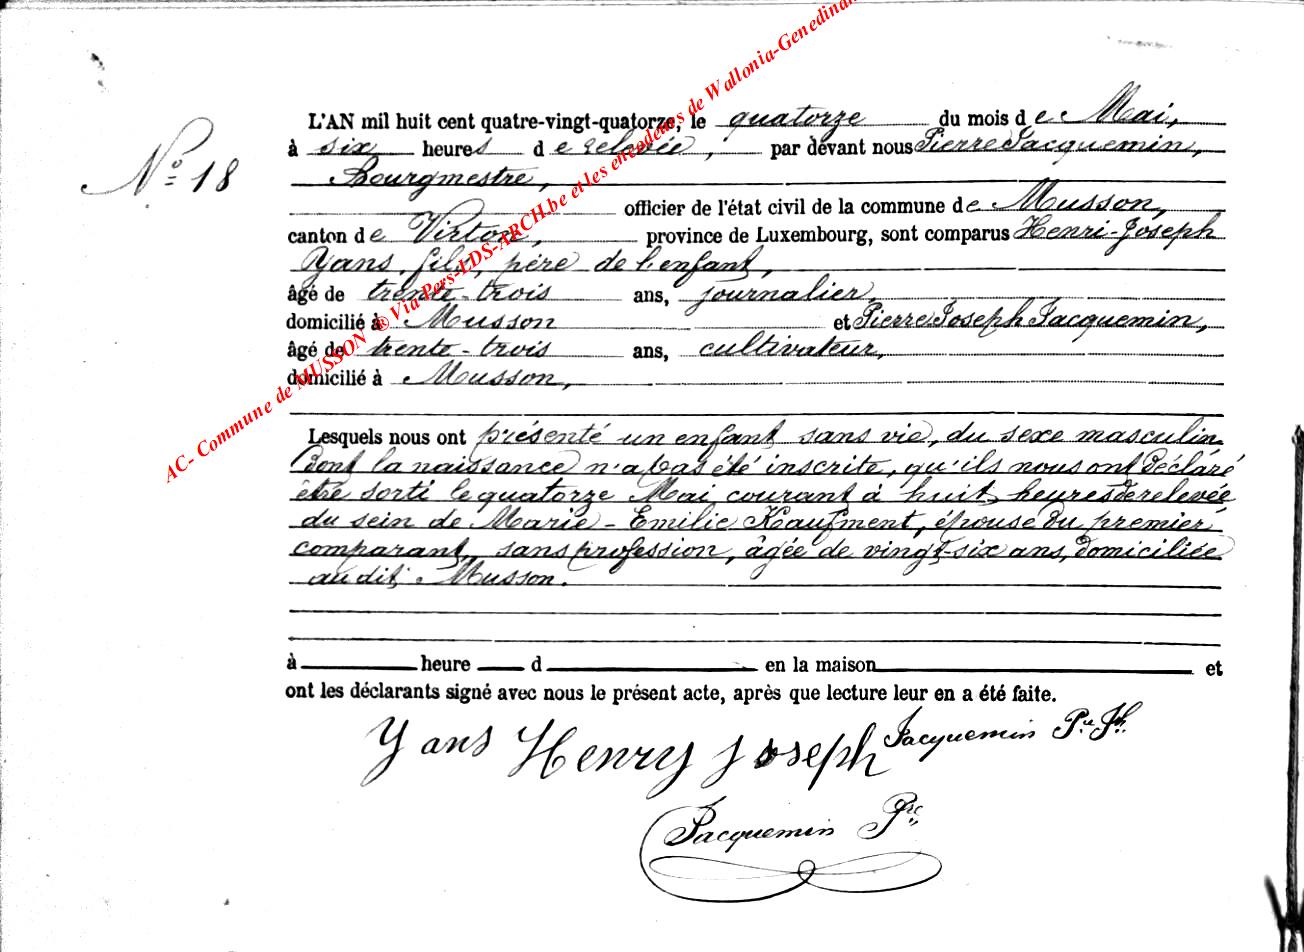 N° 18
L'AN mil huit cent quatre-vingt-quatorze, le quatorze du mois de Mai,
à six heures de relevée, par dévant nous Pierre Jacquemin,
Bourgmestre,
officier de l'état civil de la commune de Musson,
canton de Virton, province de Luxembourg, sont comparus Henri-Joseph
Yans, fils, père de l'enfant,
âgé de trente-trois ans, journalier,
domicilié à Musson et Pierre Joseph Jacquemin,
âgé de trente-trois ans, cultivateur,
domicilié à Musson,
Lesquels nous ont présenté un enfant sans vie, du sexe masculin
dont la naissance n'a pas été inscrite, qu'ils nous ont déclaré
être sorti le quatorze Mai courant à huit heures de relevée
du sein de Marie-Emilie Kaufment, épouse du premier
comparant, sans profession, âgée de vingt-six ans, domiciliée
au dit Musson.
à heure d en la maison et
ont les déclarants signé avec nous le présent acte, après que lecture leur en a été faite.
Yans Henry Joseph Jacquemin Pre Jh.
Jacquemin Pre
AC- Commune de MUSSON ® Via Pers-LDS-ARCH.be et les encodeurs de Wallonia-Genedinan